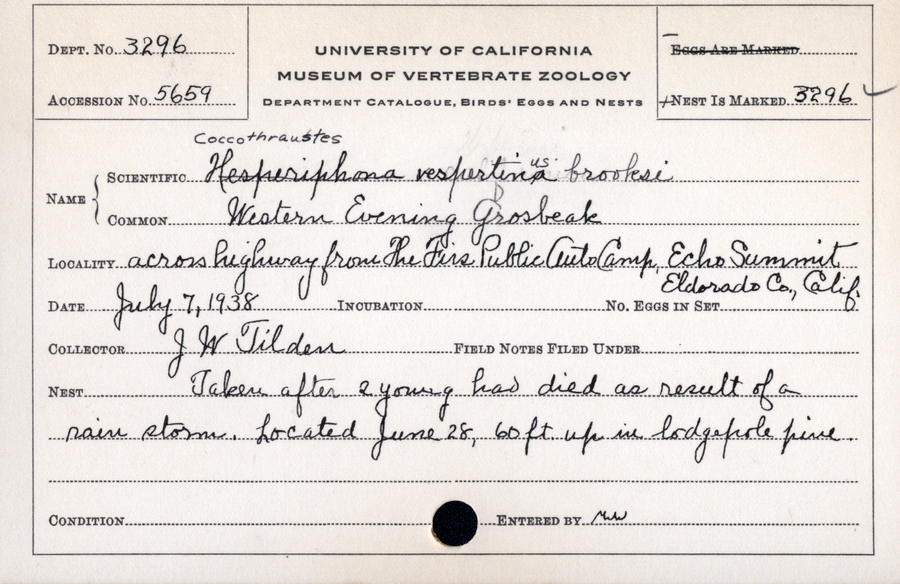 Dept. No. 3296
Accession No. 5659
UNIVERSITY OF CALIFORNIA
MUSEUM OF VERTEBRATE ZOOLOGY
Department Catalogue, Birds' Eggs and Nests
Eggs Are Marked
Nest Is Marked 3296
Coccothraustes
Name
Scientific Hesperiphona vespertina us brooksi
Common Western Evening Grosbeak
Locality across highway from The Firs Public Auto Camp, Echo Summit
Eldorado Co., Calif.
Date July 7, 1938 Incubation No. Eggs in Set
Collector J W Tilden Field Notes Filed Under
Nest Taken after 2 young had died as result of a
rain storm. Located June 28, 60 ft. up in lodgepole pine.
Condition Entered by